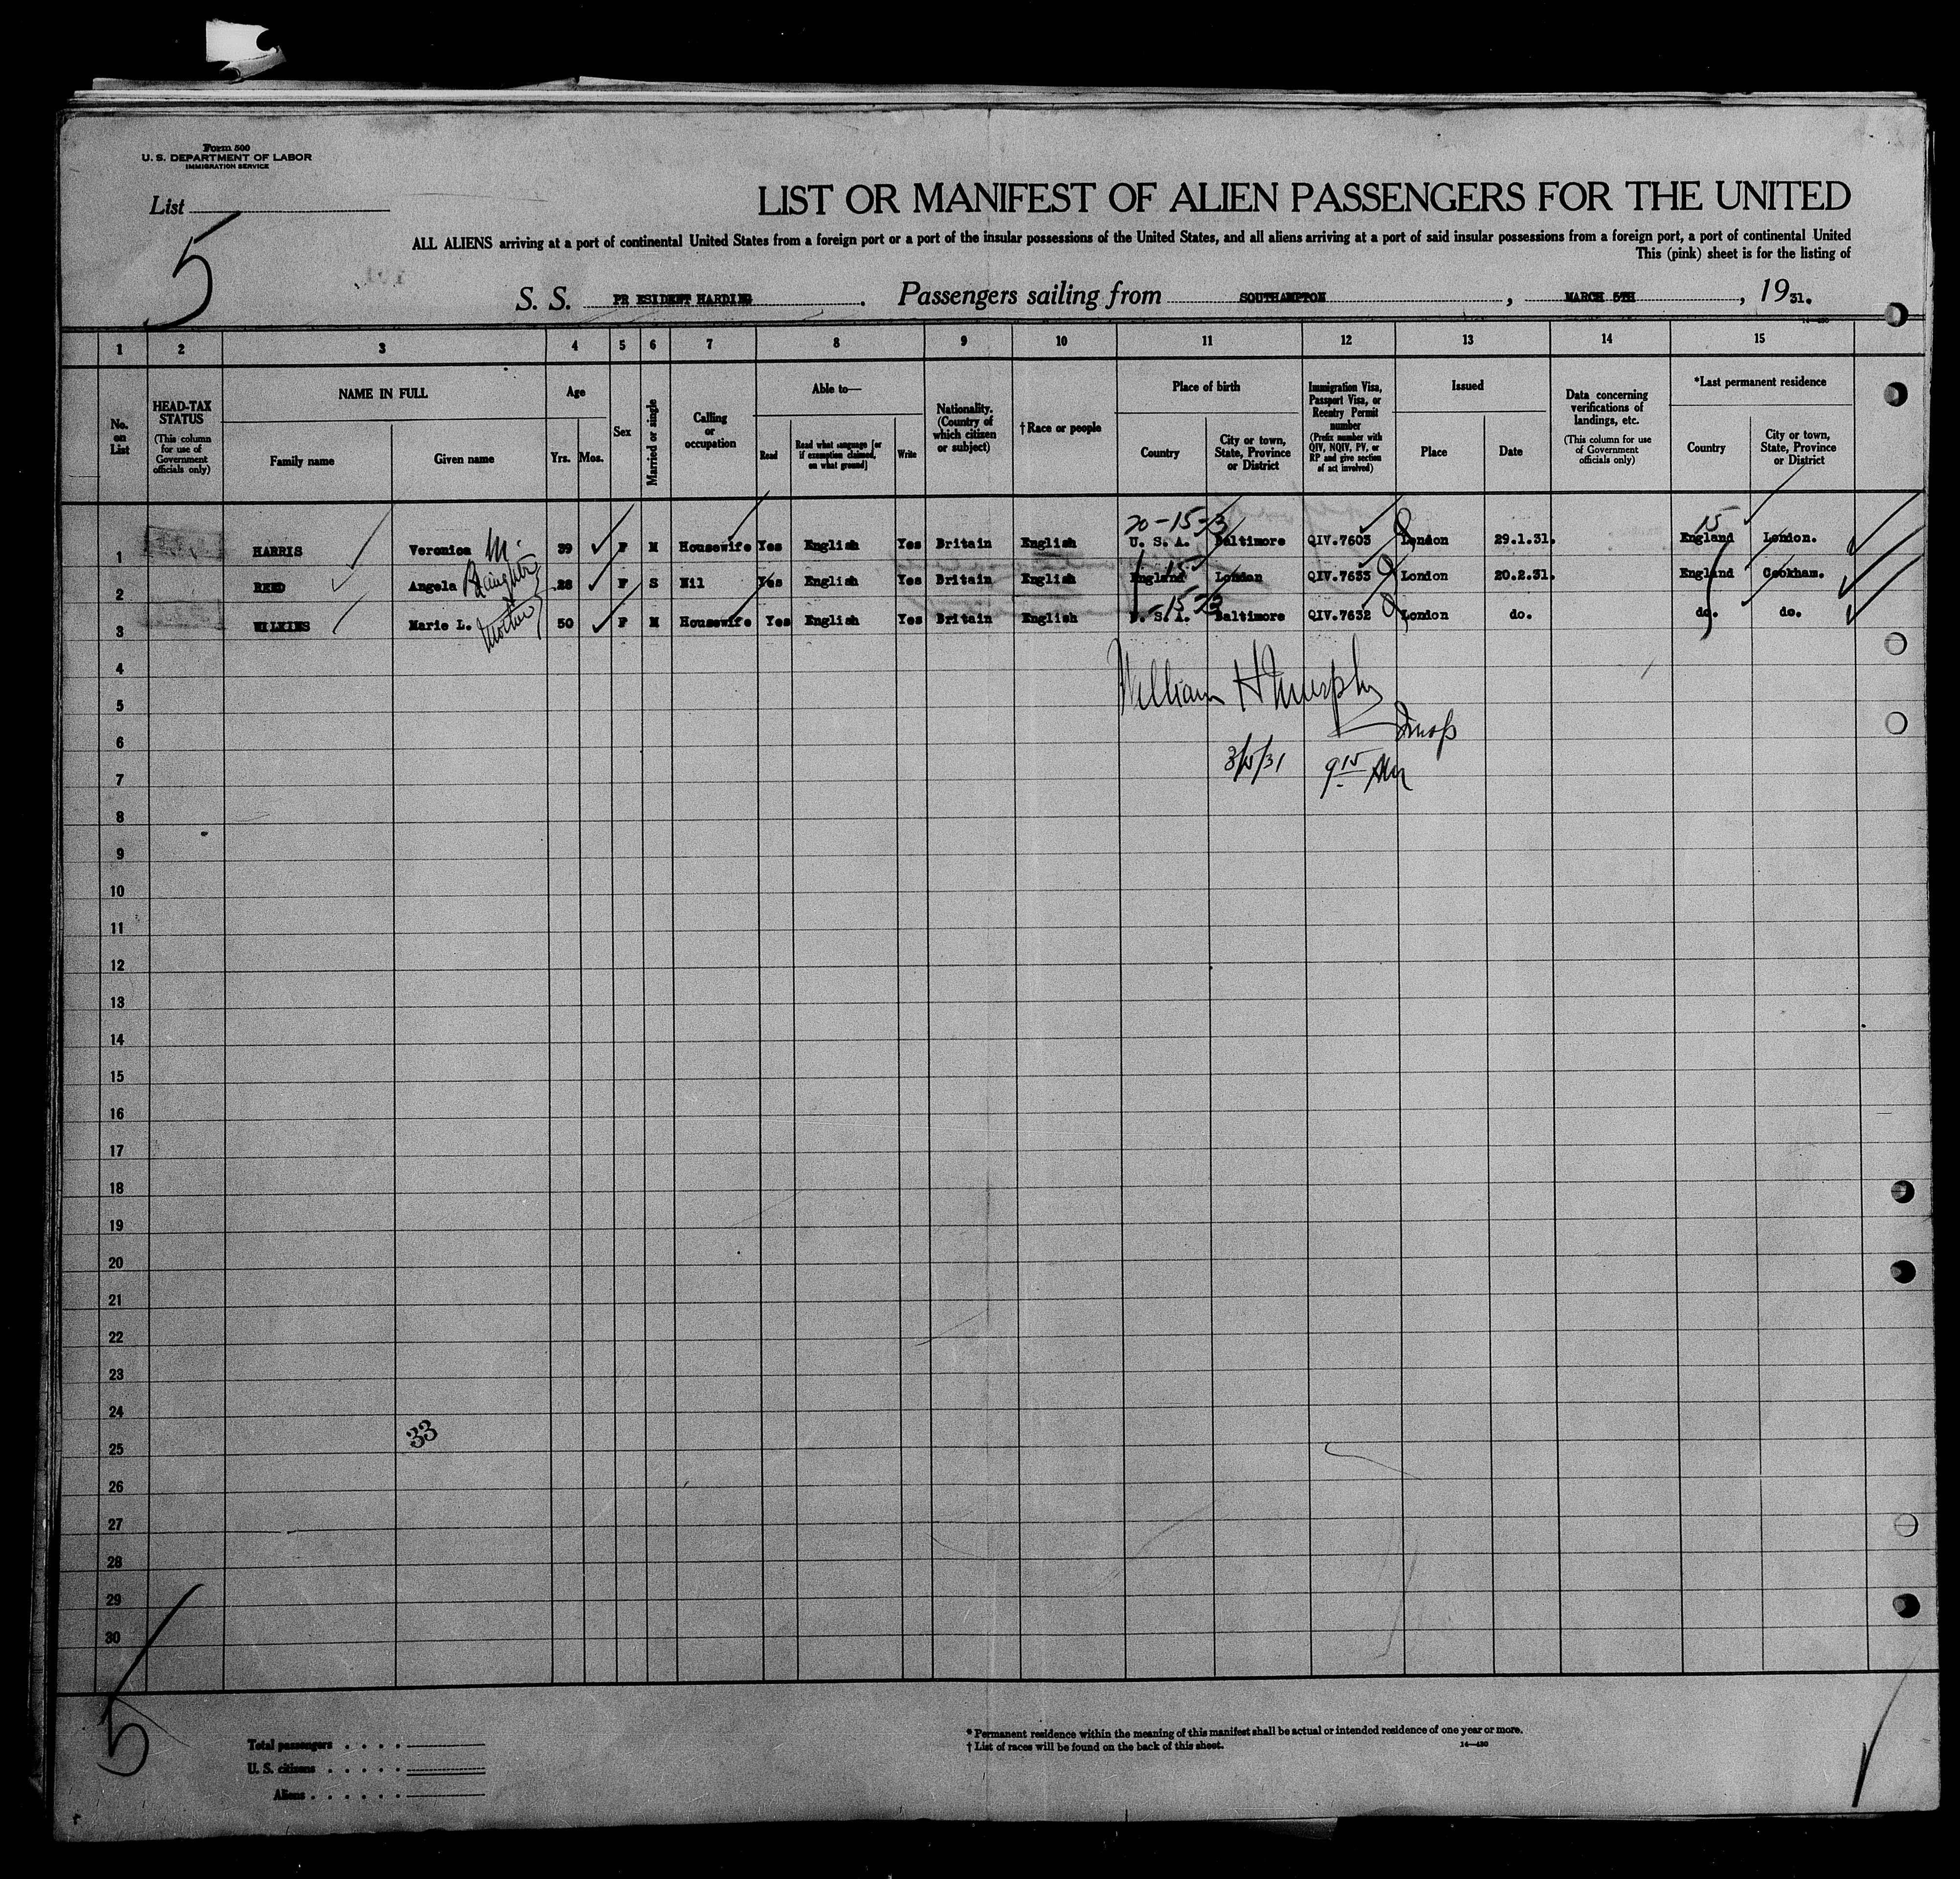 Form 500
U. S. DEPARTMENT OF LABOR
IMMIGRATION SERVICE
List
5
LIST OR MANIFEST OF ALIEN PASSENGERS FOR THE UNITED
ALL ALIENS arriving at a port of continental United States from a foreign port or a port of the insular possessions of the United States, and all aliens arriving at a port of said insular possessions from a foreign port, a port of continental United
This (pink) sheet is for the listing of
S. S. PR ESIDENT HARDING. Passengers sailing from SOUTHAMPTON, MARCH 5TH, 1931.
1 2 3 4 5 6 7 8 9 10 11 12 13 14 15
No. on List
HEAD-TAX STATUS
(This column for use of Government officials only)
NAME IN FULL
Family name
Given name
Age
Yrs. Mos.
Sex
Married or single
Calling or occupation
Able to—
Read
Read what language [or if exemption claimed, on what ground]
Write
Nationality. (Country of which citizen or subject)
†Race or people
Place of birth
Country
City or town, State, Province or District
Immigration Visa, Passport Visa, or Reentry Permit number
(Prefix number with QIV, NQIV, PV, or RP and give section of act involved)
Issued
Place
Date
Data concerning verifications of landings, etc.
(This column for use of Government officials only)
*Last permanent residence
Country
City or town, State, Province or District
20-15-3 15
1 HARRIS Veronica M. 39 F M Housewife Yes English Yes Britain English U. S. A. Baltimore QIV.7603 London 29.1.31. England London.
2 REED Angela Daughter 28 F S Nil Yes English Yes Britain English England 15 London QIV.7633 London 20.2.31. England Cookham.
3 WILKINS Marie L. Mother 50 F M Housewife Yes English Yes Britain English U. S. A. Baltimore QIV.7632 London do. do. do.
4
William H Murphy
5
6
3/15/31 9 15 AM
7
8
9
10
11
12
13
14
15
16
17
18
19
20
21
22
23
24
33
25
26
27
28
29
30
5
Total passengers . . . .
U. S. citizens . . . . .
Aliens . . . . . .
* Permanent residence within the meaning of this manifest shall be actual or intended residence of one year or more.
† List of races will be found on the back of this sheet.
14—430